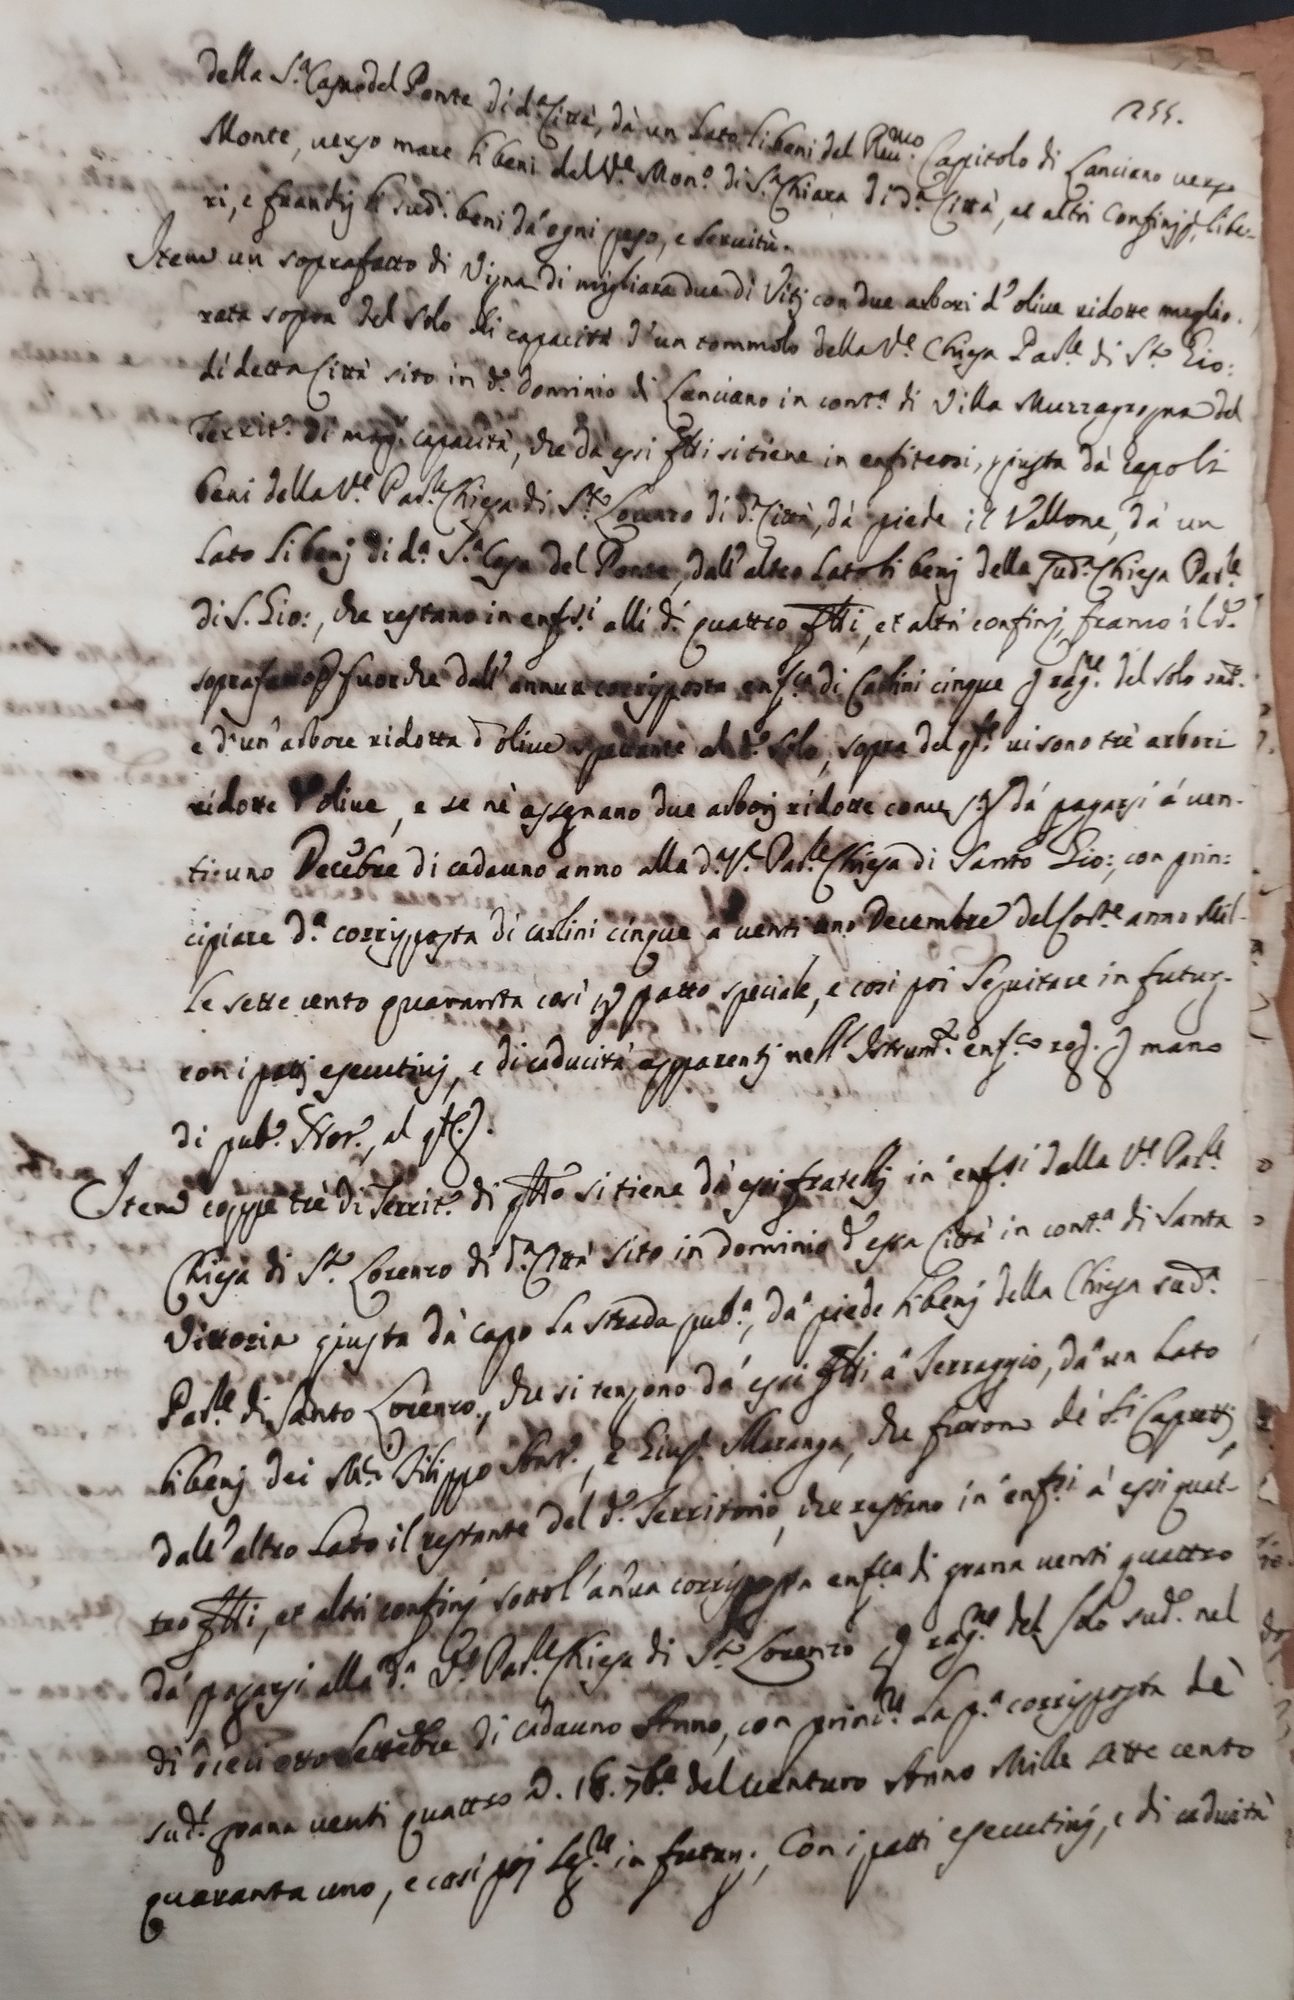 255.
della S.ª Casa del Ponte di d.ª Città, da un lato li beni del R.mo Capitolo di Lanciano verso
Monte, verso mare li beni del V.e Mon.o di S.ª Chiara di d.ª Città, et altri confinij, libe-
ri, e franchij li sud.i beni da ogni peso, e servitù.
Item un soprafatto di Vigna di migliara due di Vitj con due arbori d'olive ridotte meglio.
rata sopra del solo di capacità d'un tommolo della V.e Chiesa Par.le di S.to Gio:
di detta Città sito in d.o dominio di Lanciano in cont.ª di Villa Muzzagrogna del
Territ.o di magg.r capacità, che da essi ftti si tiene in enfiteusi, giusta da capo li
beni della V.e Par.le Chiesa di S.to Lorenzo di d.ª Città, da piede il Vallone, da un
lato li benj di d.ª S.ª Casa del Ponte, dall'altro lato li benj della sud.ª Chiesa Par.le
di S. Gio:, che restano in enf.si alli d.i quattro ftti, et altri confinj, franco il d.o
soprafatto fuorche dall'annua corrisposta enf.ca di Carlini cinque p rag.ne del solo sud.o
e d'un'arbore ridotta d'olive spettante al d.o solo, sopra del q.le vi sono trè arbori
ridotte d'olive, e se nè assegnano due arborj ridotte come s.ª da pagarsi à ven-
ti:uno Decẽbre di cadauno anno alla d.ª V.e Par.le Chiesa di Santo Gio:, con prin:
cipiare d.ª corrisposta di carlini cinque a venti uno Decembre del Corr.te anno Mil-
le sette cento quaranta così p patto speciale, e cosi poi seguitare in futur.
con i pattj esecutivj, e di caducità apparentj nell'Istrum.o enf.co rog. p mano
di pub.o Not.o, al q.le
Item coppe trè di Territ.o di q.to si tiene da essi fratellj in enf.si dalla V.e Par.le
Chiesa di S.to Lorenzo di d.ª Città sito in dominio d'essa Città in cont.ª di Santa
Vittoria giusta da capo la strada pub.ª, da piede li benj della Chiesa sud.ª
Par.le di Santo Lorenzo, che si tengono da essi ftti a Terraggio, da un lato
li benj dei Filippo Ant.o, e Gius.e Maranga, che furono de' Capretti,
dall'altro lato il restante del d.o Territorio, che restano in enf.si à essi quat-
tro ftti, et altri confinj sotto l'annua corrisposta enf.ca di grana venti quattro
da pagarsi alla d.ª V.e Par.le Chiesa di S.to Lorenzo p rag.ne del solo sud.o nel
dì dieci otto Settẽbre di cadauno Anno, con princ.re la p.ª corrisposta dè
sud.i grana venti quattro a. 18. 7b.e del venturo Anno Mille sette cento
quaranta uno, e così poj seg.re in futur., con i patti esecutivj, e di caducità